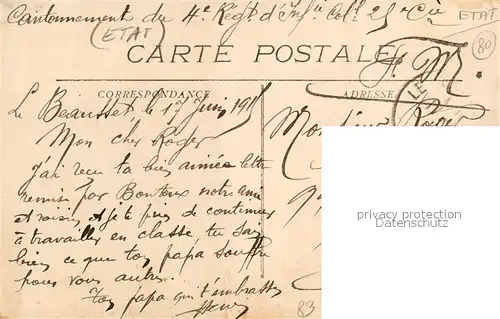 Cantonnement du 4e Régt d'Infie Colle 25e Cie
(ETAT)
ETAT
80
CARTE POSTALE
F. M.
CORRESPONDANCE
ADRESSE
Le Beausset, le 17 Juin 191
Mon cher Roger
Monsieur Roger
J'ai reçu ta bien aimée lettre
remise par Bontoux notre ami
et voisin et je te prie de continuer
à travailler en classe tu sais
bien ce que ton papa souffre
pour vous autres.
ton papa qui t'embrasse
Henri
83
privacy protection
Datenschutz